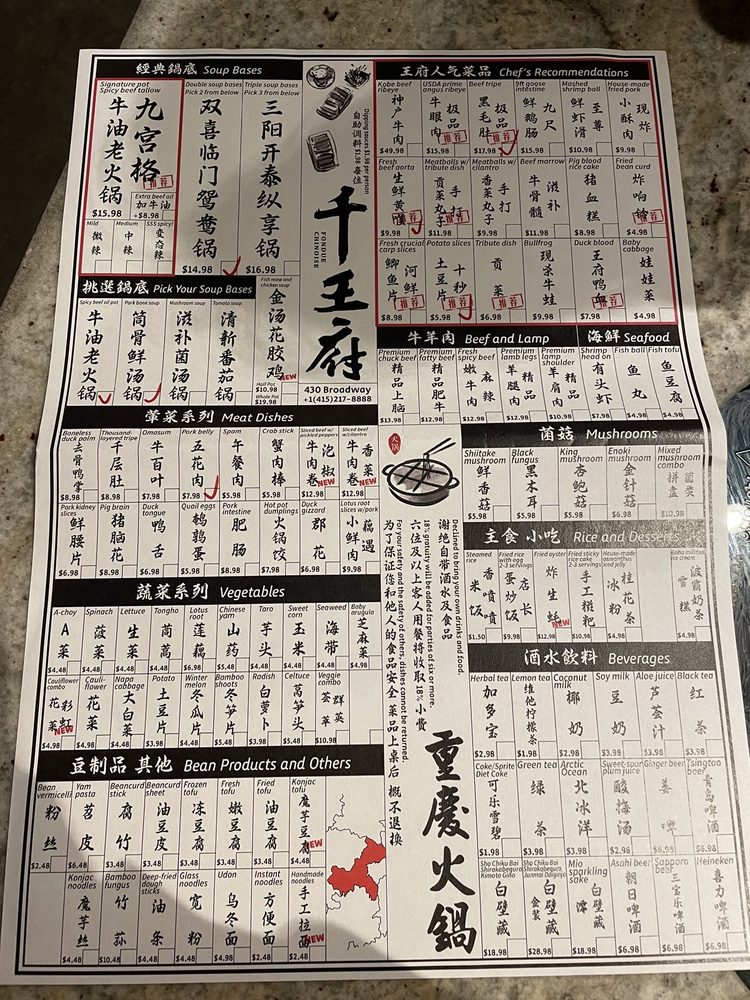 經典鍋底 Soup Bases
Signature pot
Spicy beef tallow
九宫格
牛油老火锅
推荐
$15.98
Extra beef oil
加牛油
+$8.98
Mild
微辣
Medium
中辣
SSS spicy!
变态辣
Double soup bases
Pick 2 from below
双喜临门鸳鸯锅
$14.98
Triple soup bases
Pick 3 from below
三阳开泰纵享锅
$16.98
挑選鍋底 Pick Your Soup Bases
Spicy beef oil pot
牛油老火锅
Pork bone soup
筒骨鲜汤锅
Mushroom soup
滋补菌汤锅
Tomato soup
清新番茄锅
Fish maw and
chicken soup
金汤花胶鸡
NEW
Half Pot
$10.98
Whole Pot
$19.98
Dipping sauces $1.98 per person
自助调料 $1.98 每位
千王府
FONDUE
CHINOISE
430 Broadway
+1(415)217-8888
王府人气菜品 Chef's Recommendations
Kobe beef
ribeye
神户牛肉
$49.98
USDA prime
angus ribeye
极品牛眼肉
推荐
$15.98
Beef tripe
极品黑毛肚
推荐
$17.98
9ft goose
intestine
九尺鲜鹅肠
$15.98
Mashed
shrimp ball
至尊鲜虾滑
$10.98
House-made
fried pork
现炸小酥肉
$9.98
Fresh
beef aorta
生鲜黄喉
推荐
$9.98
Meatballs w/
tribute dish
手打贡菜丸子
推荐
$9.98
Meatballs w/
cilantro
手打香菜丸子
$9.98
Beef marrow
滋补牛骨髓
$11.98
Pig blood
rice cake
猪血糕
$8.98
Fried
bean curd
炸响铃
推荐
$4.98
Fresh crucial
carp slices
河鲜鲫鱼片
推荐
$8.98
Potato slices
十秒土豆片
推荐
$5.98
Tribute dish
贡菜
$5.98
Bullfrog
现杀牛蛙
$9.98
Duck blood
王府鸭血
推荐
$8.98
Baby
cabbage
娃娃菜
$4.98
牛羊肉 Beef and Lamp
Premium
chuck beef
精品上脑
$13.98
Premium
fatty beef
精品肥牛
$12.98
Fresh
spicy beef
麻辣嫩牛肉
$12.98
Premium
lamb legs
精品羊腿肉
$12.98
Premium
lamb shoulder
精品羊肩肉
$12.98
海鮮 Seafood
Shrimp
head on
有头虾
$8.98
Fish ball
鱼丸
$4.98
Fish tofu
鱼豆腐
$4.98
葷菜系列 Meat Dishes
Boneless
duck palm
去骨鸭掌
$8.98
Thousand-
layered tripe
千层肚
$8.98
Omasum
牛百叶
$7.98
Pork belly
五花肉
$7.98
Spam
午餐肉
$5.98
Crab stick
蟹肉棒
$5.98
Sliced beef w/
pickled peppers
泡椒牛肉卷
NEW
$12.98
Sliced beef
w/cilantro
香菜牛肉卷
NEW
$12.98
Pork kidney
slices
鲜腰片
$6.98
Pig brain
猪脑花
$8.98
Duck
tongue
鸭舌
$8.98
Quail eggs
鹌鹑蛋
$5.98
Pork
intestine
肥肠
$7.98
Hot pot
dumplings
火锅饺
$7.98
Duck
gizzard
郡花
$6.98
Lotus root
slices w/pork
藕遇小鲜肉
$9.98
火锅
菌菇 Mushrooms
Shiitake
mushroom
鲜香菇
$5.98
Black
fungus
黑木耳
$5.98
King
mushroom
杏鲍菇
$5.98
Enoki
mushroom
金针菇
$6.98
Mixed
mushroom
combo
菌类拼盘
$10.98
主食 小吃 Rice and Desserts
Steamed
rice
香喷喷米饭
$1.50
Fried rice
with egg
2-3 servings
店长蛋炒饭
$9.98
Fried oyster
炸生蚝
NEW
$12.98
Fried sticky
rice cake
2-3 servings
手工糍粑
$10.98
House-made
osmanthus
iced jelly
桂花冰粉
$4.98
Boba milk tea
ice cream
波霸奶茶雪糕
$4.98
Declined to bring your own drinks and food.
谢绝自带酒水及食品
18% gratuity will be added for parties of six or more.
六位及以上客人用餐将收取18%小费
For your safety and the safety of others, dishes cannot be returned.
为了保证您和他人的食品安全 菜品上桌后 概不退换
蔬菜系列 Vegetables
A-choy
A菜
$4.48
Spinach
菠菜
$4.48
Lettuce
生菜
$4.48
Tongho
茼蒿
$4.48
Lotus
root
莲藕
$6.98
Chinese
yam
山药
$5.48
Taro
芋头
$4.48
Sweet
corn
玉米
$4.48
Seaweed
海带
$4.48
Baby
arugula
芝麻菜
$4.98
Cauliflower
combo
彩虹花菜
NEW
$4.98
Cauli-
flower
花菜
$4.98
Napa
cabbage
大白菜
$4.48
Potato
土豆片
$3.98
Winter
melon
冬瓜片
$4.48
Bamboo
shoots
冬笋片
$5.98
Radish
白萝卜
$3.98
Celtuce
莴笋头
$5.48
Veggie
combo
群英荟萃
$10.98
酒水飲料 Beverages
Herbal tea
加多宝
$2.98
Lemon tea
维他柠檬茶
$1.98
Coconut
milk
椰奶
$2.98
Soy milk
豆奶
$3.98
Aloe juice
芦荟汁
$3.98
Black tea
红茶
$3.98
Coke/Sprite
Diet Coke
可乐雪碧
$1.98
Green tea
绿茶
$3.98
Arctic
Ocean
北冰洋
$2.98
Sweet-sour
plum juice
酸梅汤
$2.98
Ginger beer
姜啤
$3.98
Tsingtao
beer
青岛啤酒
$5.98
Sho Chiku Bai
Shirakabegura
Kimoto Ginjo
白壁藏
$18.98
Sho Chiku Bai
Shirakabegura
Junmai Daiginjo
白壁藏金装
$28.98
Mio
sparkling
sake
白壁藏澪
$18.98
Asahi beer
朝日啤酒
$6.98
Sapporo
beer
三宝乐啤酒
$6.98
Heineken
喜力啤酒
$6.98
豆制品 其他 Bean Products and Others
Bean
vermicelli
粉丝
$2.48
Yam
pasta
苕皮
$6.48
Beancurd
stick
腐竹
$3.48
Beancurd
sheet
油豆皮
$3.48
Frozen
tofu
冻豆腐
$3.48
Fresh
tofu
嫩豆腐
$3.48
Fried
tofu
油豆腐
$3.48
Konjac
tofu
魔芋豆腐
NEW
$4.48
Konjac
noodles
魔芋丝
$4.48
Bamboo
fungus
竹荪
$10.48
Deep-fried
dough
sticks
油条
$4.48
Glass
noodles
宽粉
$4.48
Udon
乌冬面
$4.98
Instant
noodles
方便面
$2.48
Handmade
noodles
手工拉面
NEW
$2.48
重慶火鍋